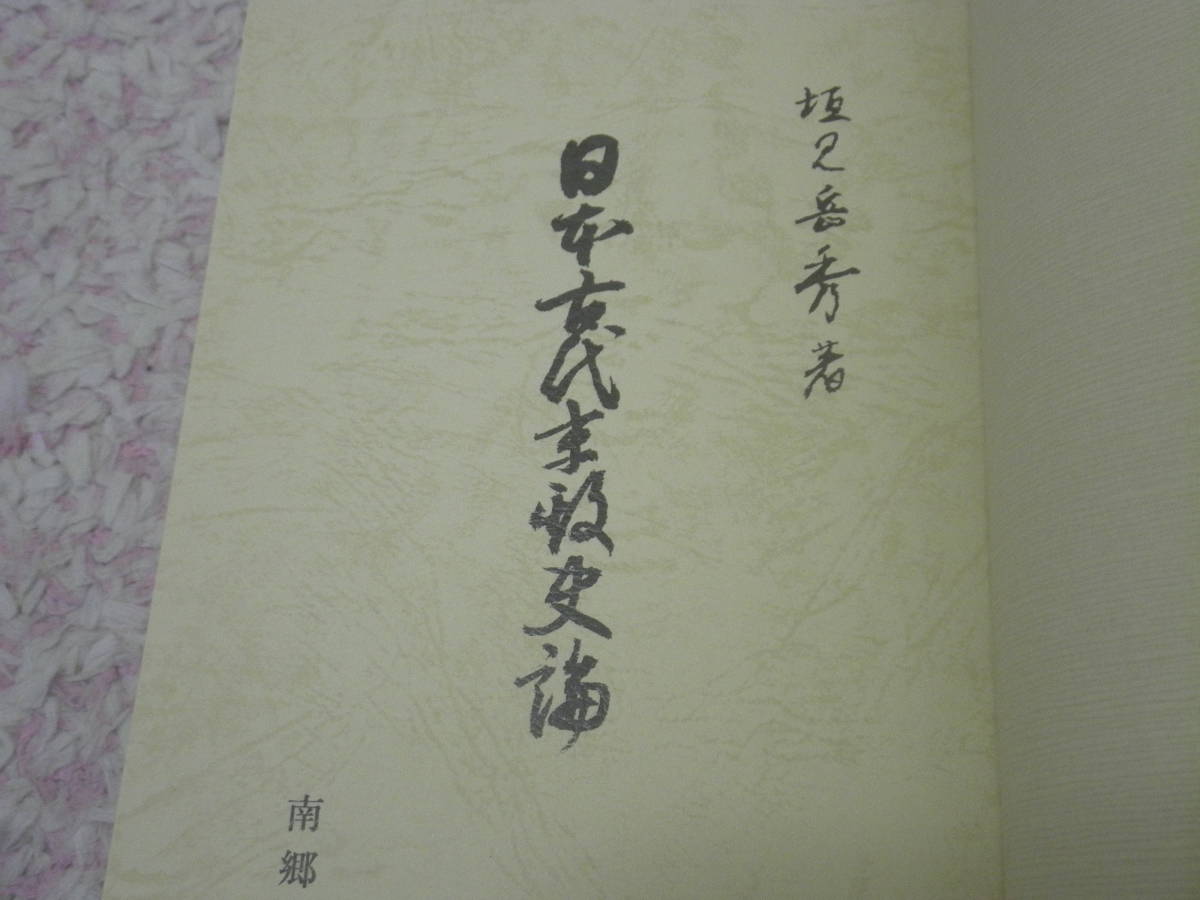 垣見岳秀著
日本古代末政史論
南郷